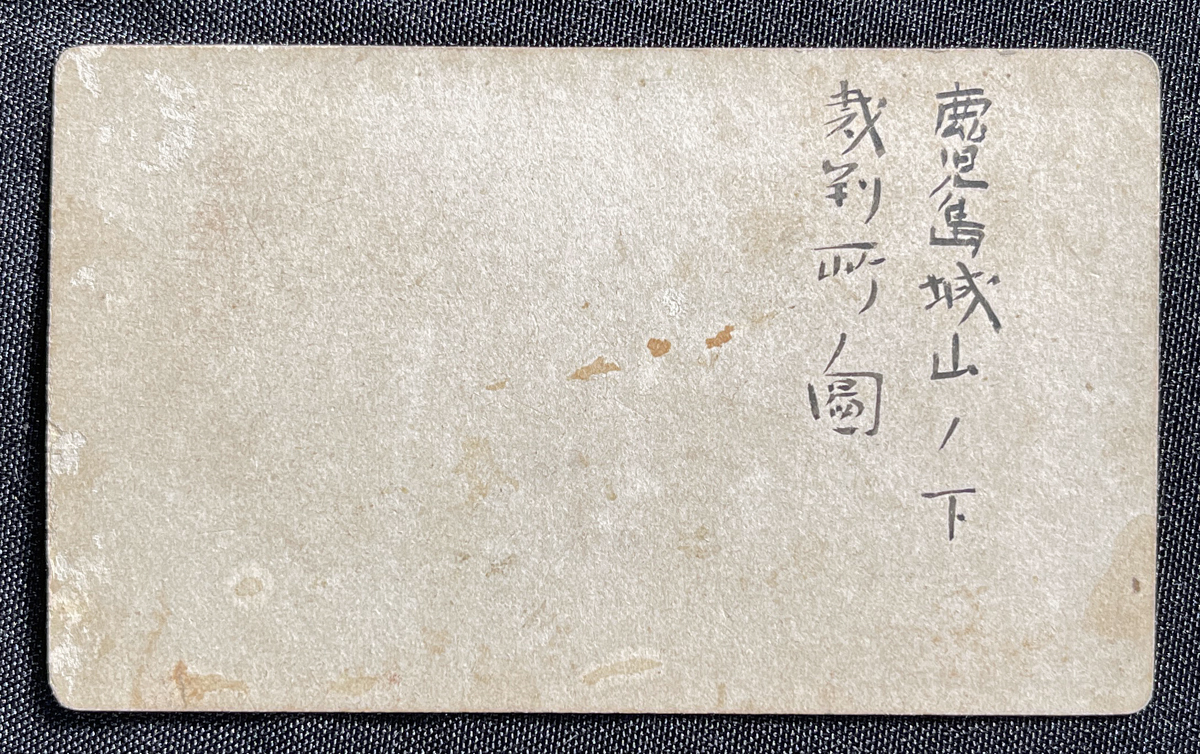 鹿児島城山ノ下
裁判所ノ圖